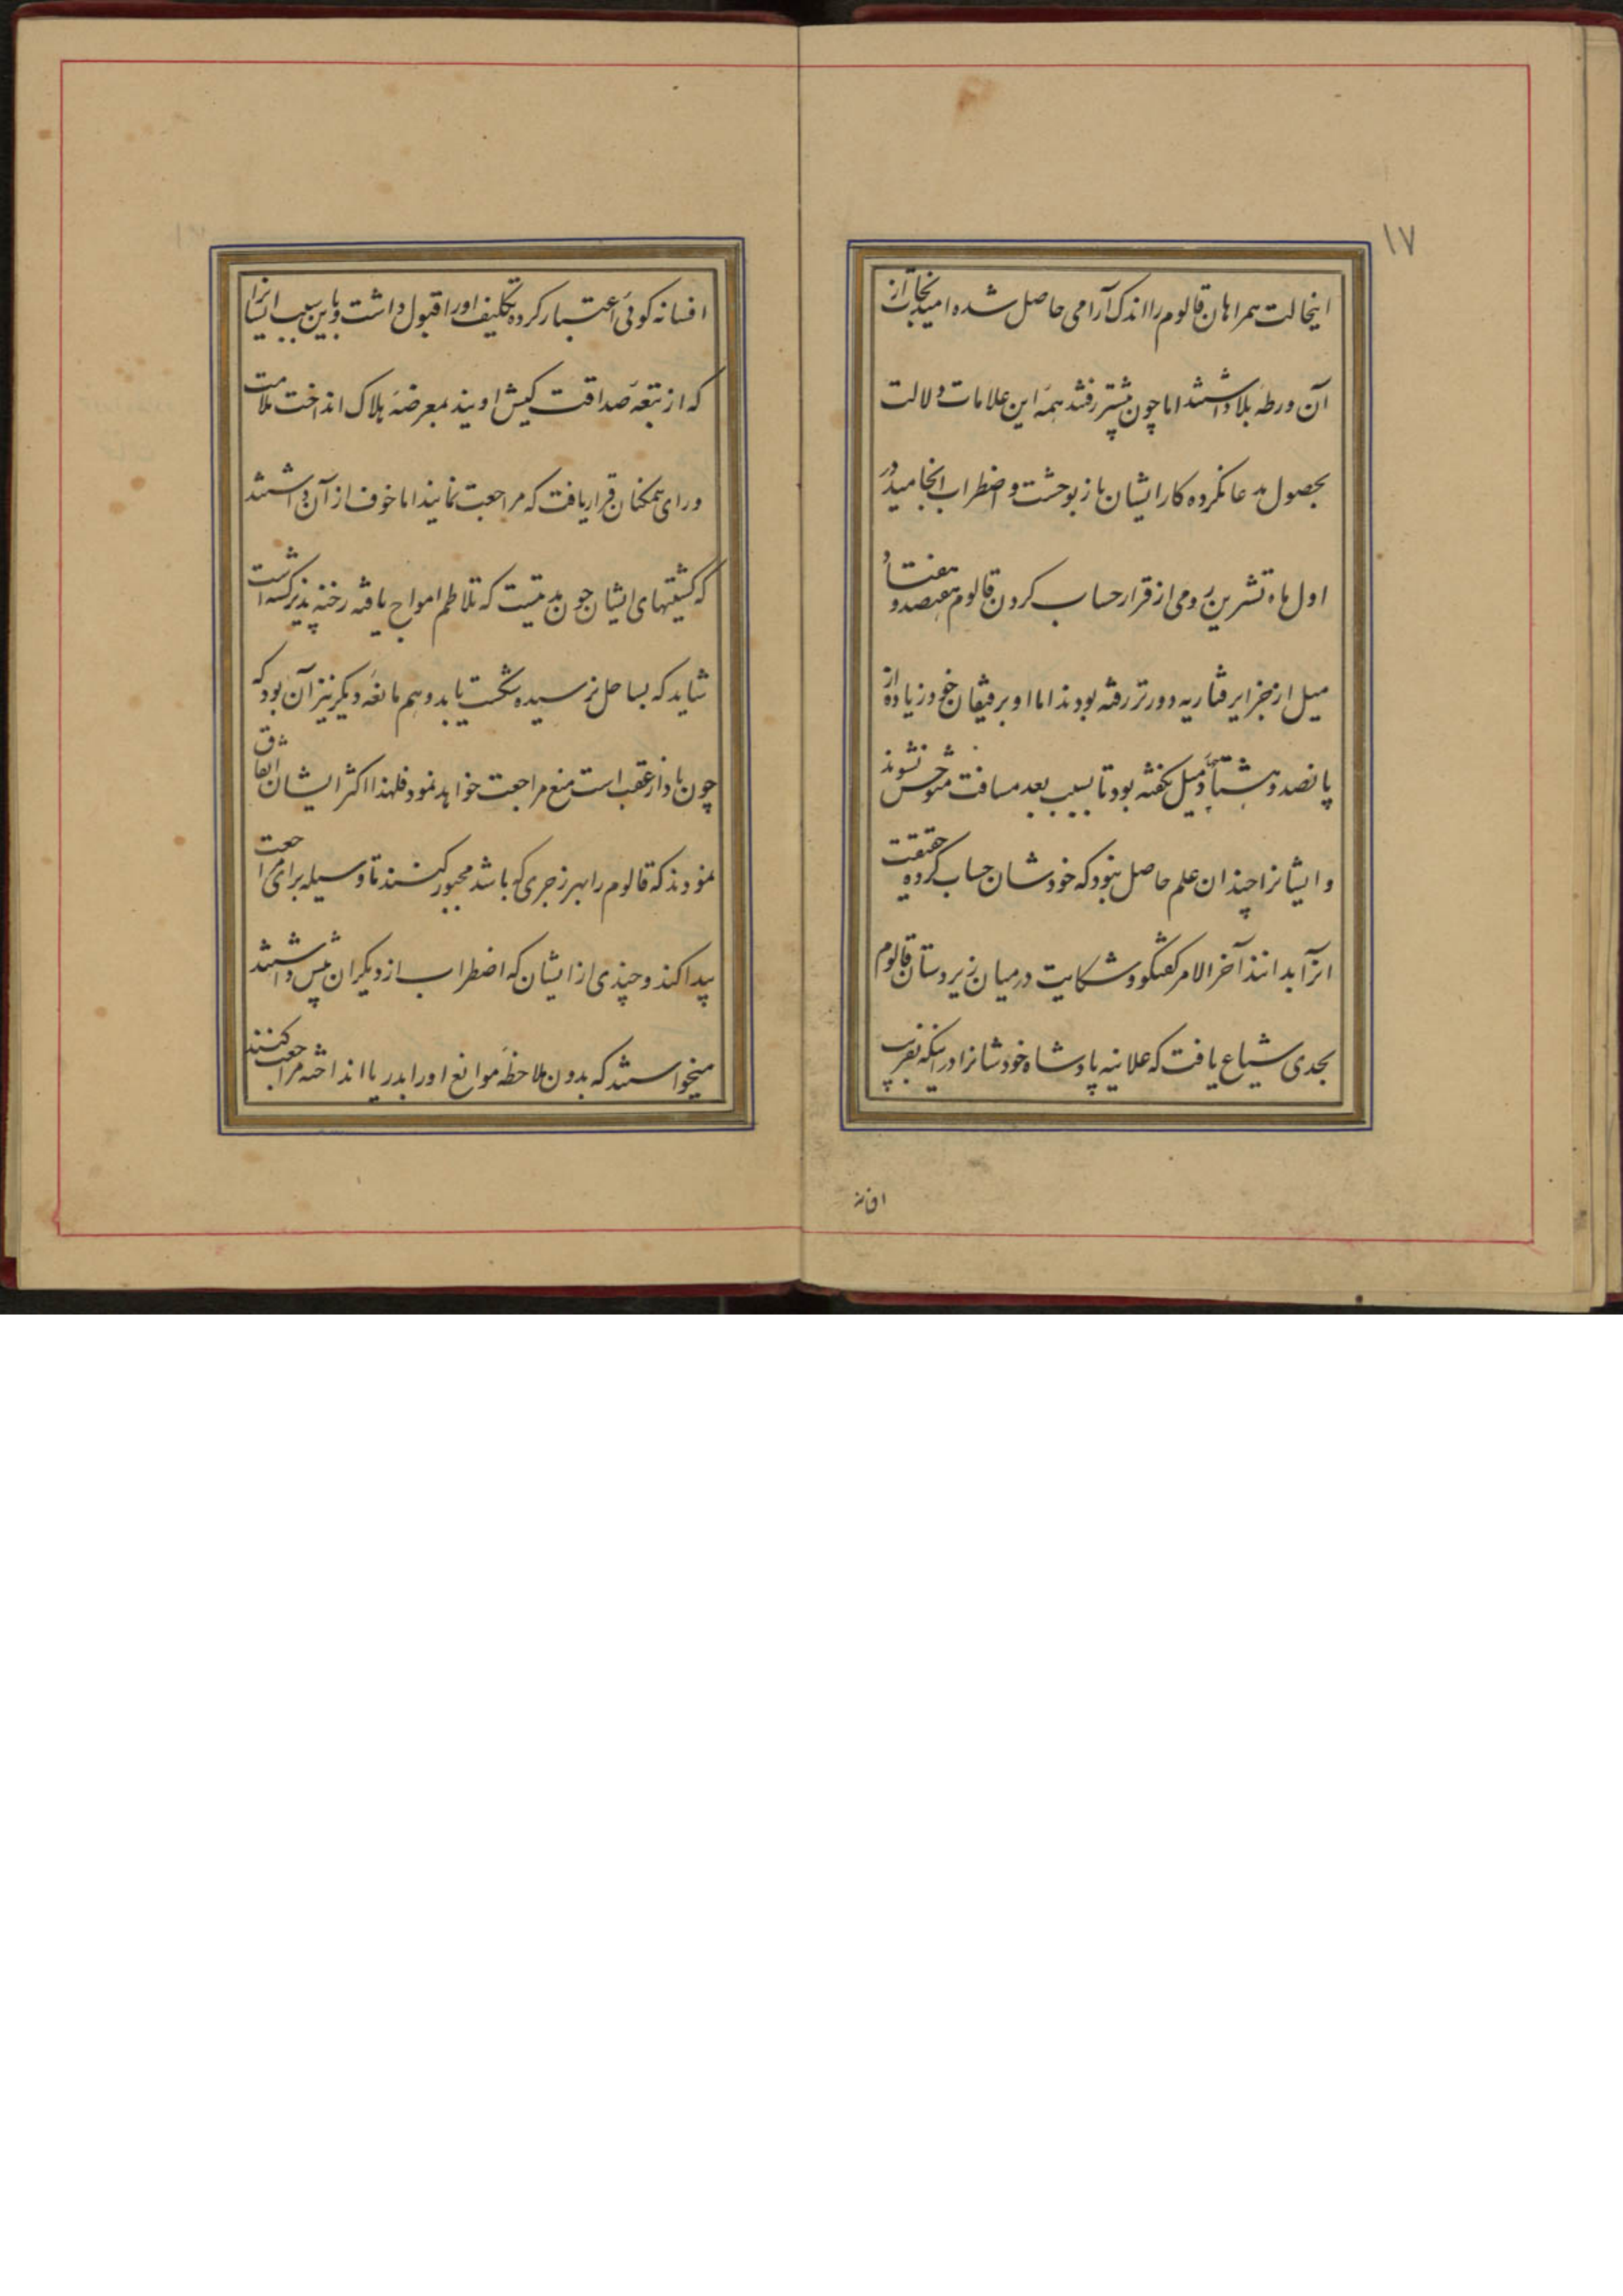 ۱۷
اینحالت همراهان قالوم را اندک آرامی حاصل شده امید نجات از
آن ورطه بلا داشتند اما چون پیشتر رفتند همهٔ این علامات دلالت
بحصول مدعا نکرده کار ایشان باز بوحشت و اضطراب انجامید در
اول ماه تشرین رومی از قرار حساب کردن قالوم هفتصد و هفتاد
میل از جزایر قناریه دورتر رفته بودند اما او برفیقان خود زیاده از
پانصد و هشتاد میل نگفته بود تا بسبب بعد مسافت متوحش نشوند
و ایشانرا چندان علم حاصل نبود که خودشان حساب کرده حقیقت
انرا بدانند آخر الامر گفتگو و شکایت در میان زیردستان قالوم
بحدی شیاع یافت که علانیه پادشاه خودشانرا در اینکه بفریب
افسانه
افسانه کوئی اعتبار کرده تکلیف اورا قبول داشت و باین سبب ایشانرا
که از تبعهٔ صداقت کیش اویند بمعرضهٔ هلاک انداخت ملامت
و رای همکنان قرار یافت که مراجعت نمایند اما خوف از آن داشتند
که کشتیهای ایشان چون مدتیست که تلاطم امواج یافته رخنه پذیر گشته است
شاید که بساحل نرسیده شکست یابد و هم مانعهٔ دیکر نیز آن بود که
چون باد از عقب است منع مراجعت خواهد نمود فلهذا اکثر ایشان اتفاق
نمودند که قالوم را بهر زجری که باشد مجبور کنند تا وسیله برای مراجعت
پیدا کند و چندی از ایشان که اضطراب از دیکران بیش داشتند
میخواستند که بدون ملاحظهٔ موانع اورا بدریا انداخته مراجعت کنند